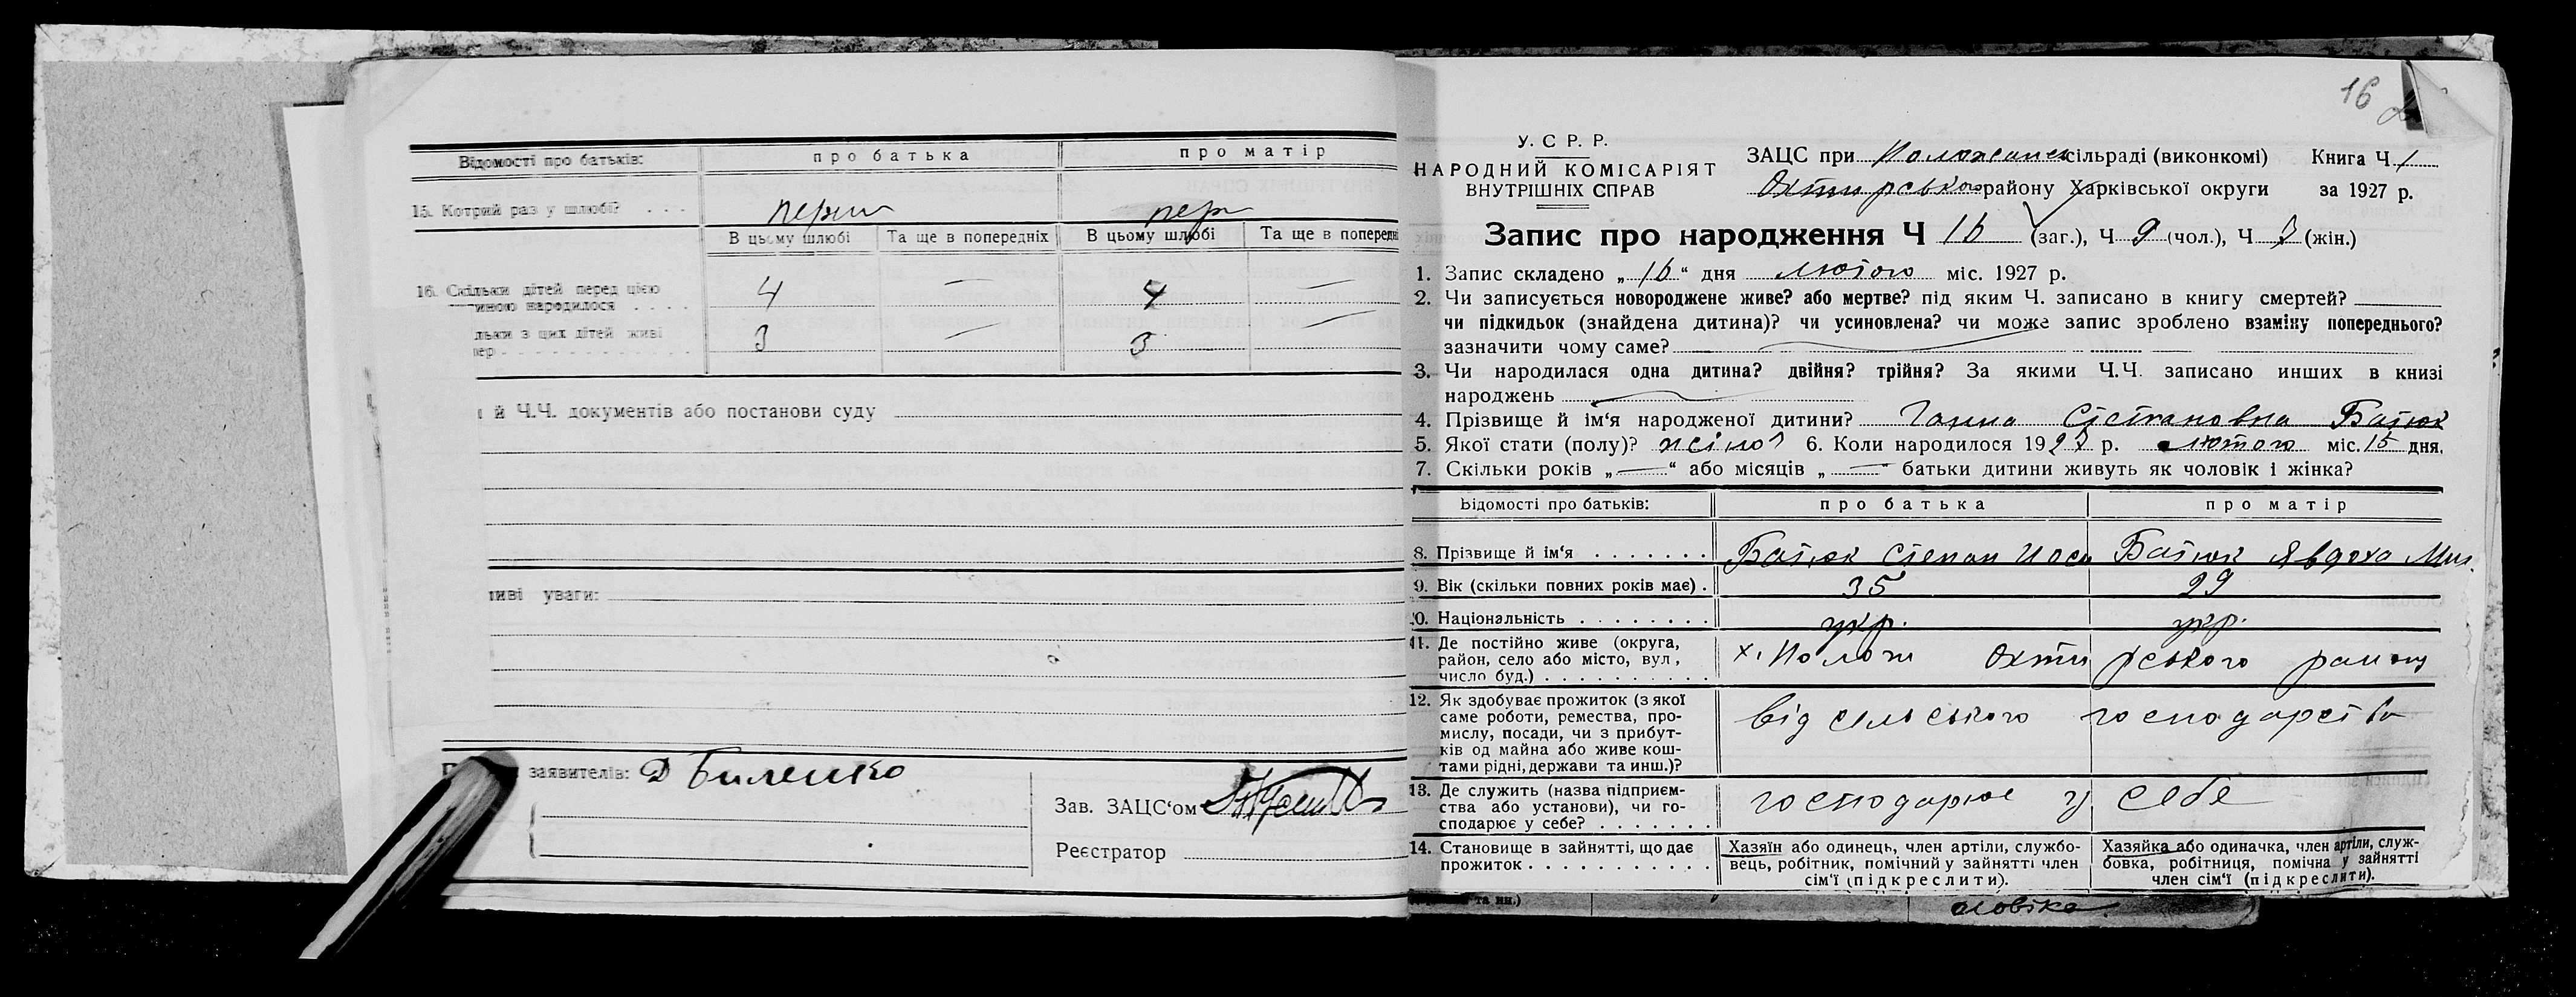 Відомості про батьків: про батька про матір
15. Котрий раз у шлюбі? перш пер
В цьому шлюбі Та ще в попередніх В цьому шлюбі Та ще в попередні
16. Скільки дітей перед цією 4 — 4 —
иною народилося
льки з цих дітей живі 3 — 3 —
пер
й Ч.Ч. документів або постанови суду
тиві уваги:
заявителів: Д Биленко
Зав. ЗАЦС‘ом
Реєстратор
16
У. С. Р. Р.
НАРОДНИЙ КОМІСАРІЯТ
ВНУТРІШНІХ СПРАВ
ЗАЦС при сільраді (виконкомі) Книга Ч 1
Охтирського району Харківської округи за 1927 р.
Запис про народження Ч 16 (заг.), Ч 9 (чол.), Ч (жін.)
1. Запис складено „16“ дня лютого міс. 1927 р.
2. Чи записується новороджене живе? або мертве? під яким Ч. записано в книгу смертей?
чи підкидьок (знайдена дитина)? чи усиновлена? чи може запис зроблено взаміну попереднього?
зазначити чому саме?
3. Чи народилася одна дитина? двійня? трійня? За якими Ч.Ч. записано инших в книзі
народжень
4. Прізвище й ім‘я народженої дитини? Ганна Степановна Батюк
5. Якої стати (полу)? 6. Коли народилося 1927 р. лютого міс. 15 дня.
7. Скільки років „—“ або місяців „—“ батьки дитини живуть як чоловік і жінка?
Відомості про батьків: про батька про матір
8. Прізвище й ім‘я Батюк Степан Йоси Батюк Явдоха Мих.
9. Вік (скільки повних років має) 35 29
10. Національність укр. укр.
11. Де постійно живе (округа,
район, село або місто, вул., х. Охтирського району
число буд.)
12. Як здобуває прожиток (з якої
саме роботи, ремества, про- від сільського господарства
мислу, посади, чи з прибут-
ків од майна або живе кош-
тами рідні, держави та инш.)?
13. Де служить (назва підприєм-
ства або установи), чи го- господарює у себе
сподарює у себе?
14. Становище в зайнятті, що дає Хазяїн або одинець, член артіли, службо- Хазяйка або одиначка, член артіли, служ-
прожиток вець, робітник, помічний у зайнятті член бовка, робітниця, помічна у зайнятті
сім‘ї (підкреслити). член сім‘ї (підкреслити).
та ин.)